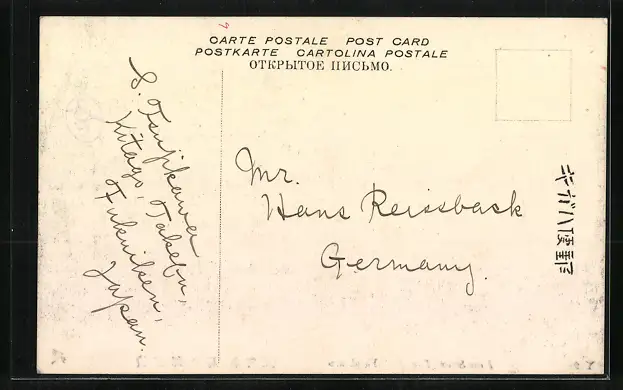 CARTE POSTALE POST CARD
POSTKARTE CARTOLINA POSTALE
ОТКРЫТОЕ ПИСЬМО.
S. Tsujikawa
Kitago, Takefu,
Fukuiken,
Japan.
Mr.
Hans Reissback
Germany.